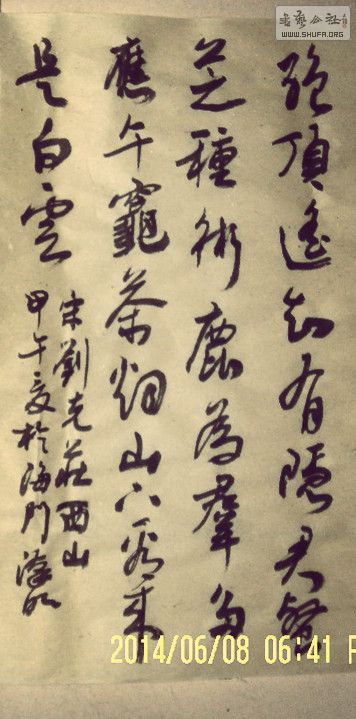 書藝公社
WWW.SHUFA.ORG
絕頂遙知有隱君餐
芝種術鹿為羣多
應午竈茶烟山下看來
是白雲
宋劉克莊西山
甲午夏於海門
2014/06/08 06:41 P